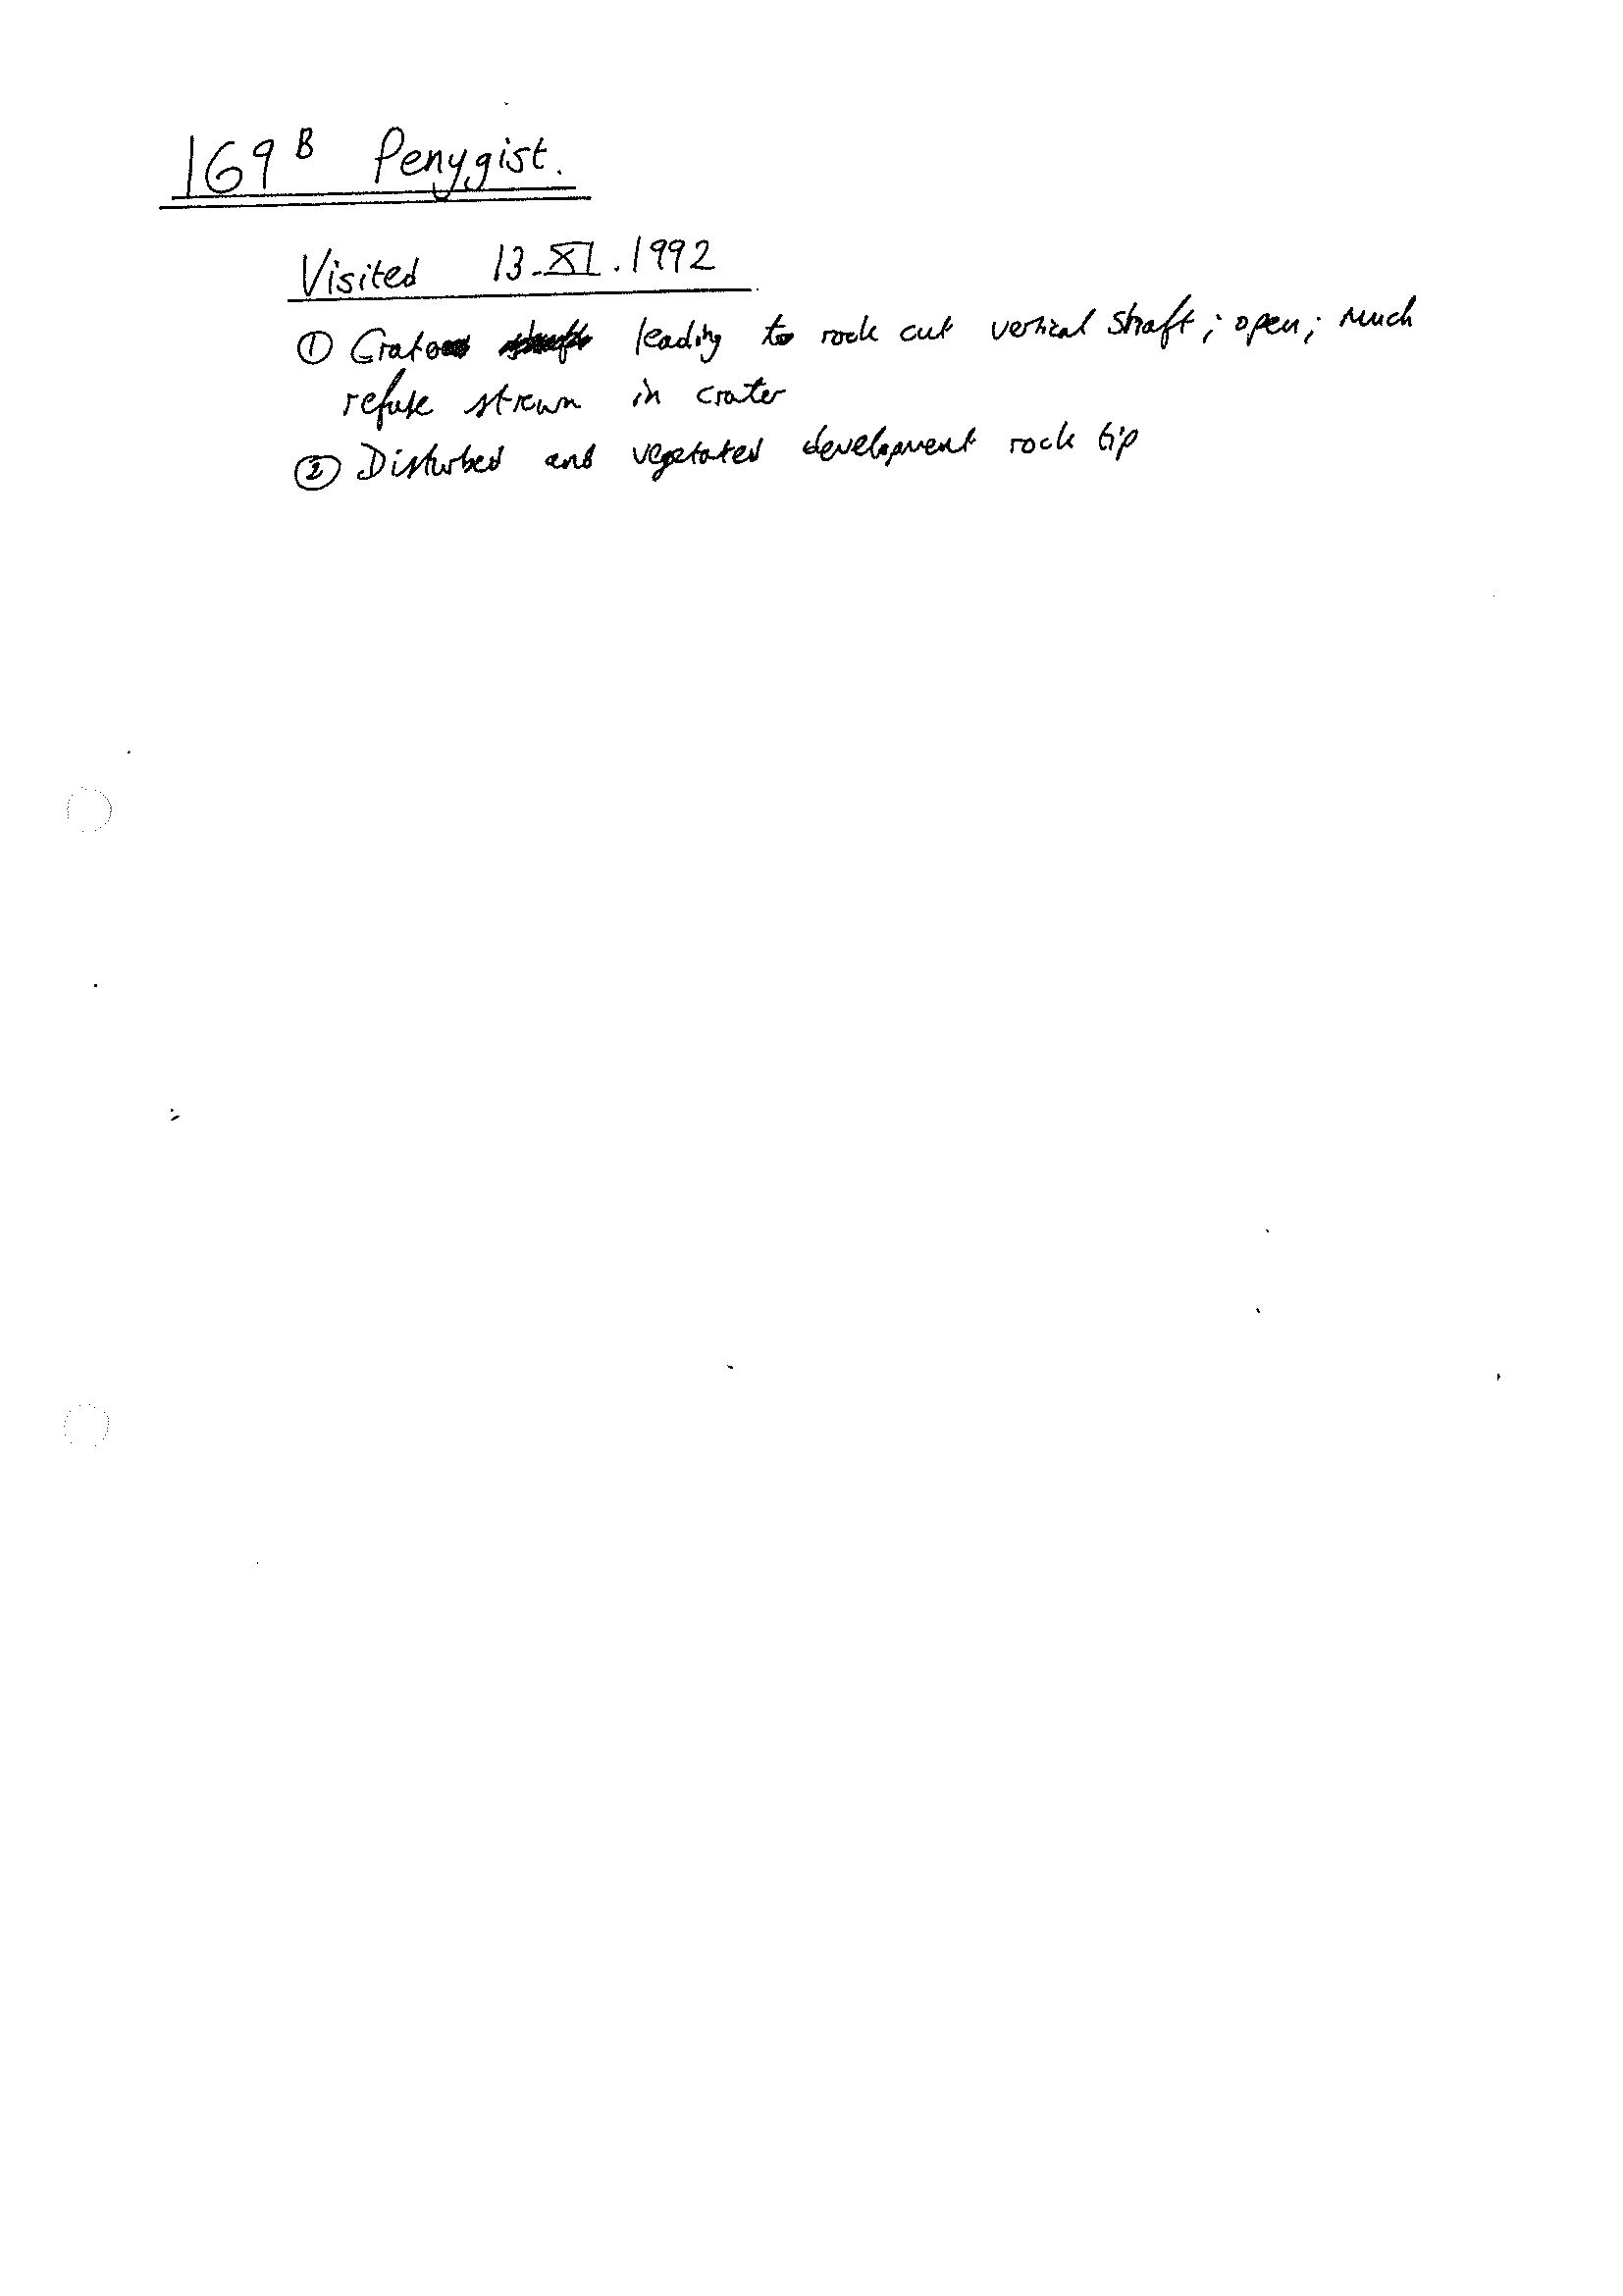 169 B Penygist.
Visited 13.XI.1992
① Crater leading to rock cut vertical shaft; open; Much
refuse strewn in crater
② Disturbed and vegetated development rock tip